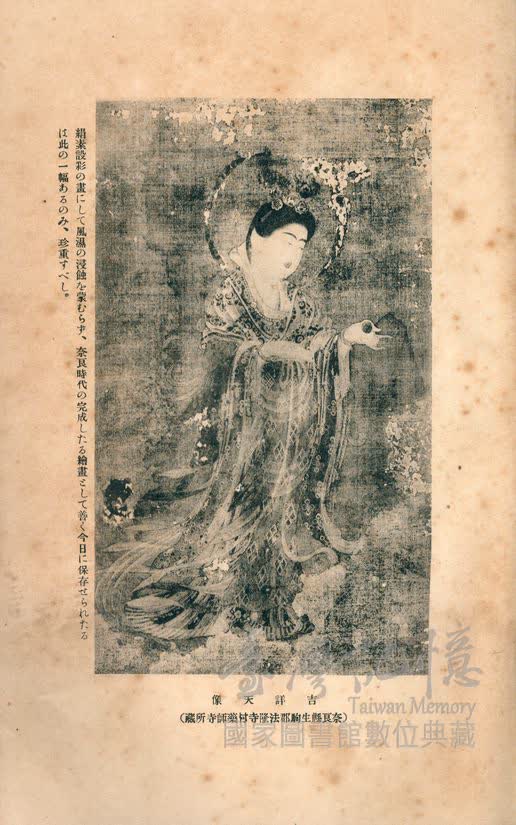 絹素設彩の畫にして風濕の浸蝕を蒙むらず、奈良時代の完成したる繪畫として善く今日に保存せられたる
は此の一幅あるのみ、珍重すべし。
吉祥天像
(奈良縣生駒郡法隆寺村藥師寺所藏)
臺灣記憶
Taiwan Memory
國家圖書館數位典藏